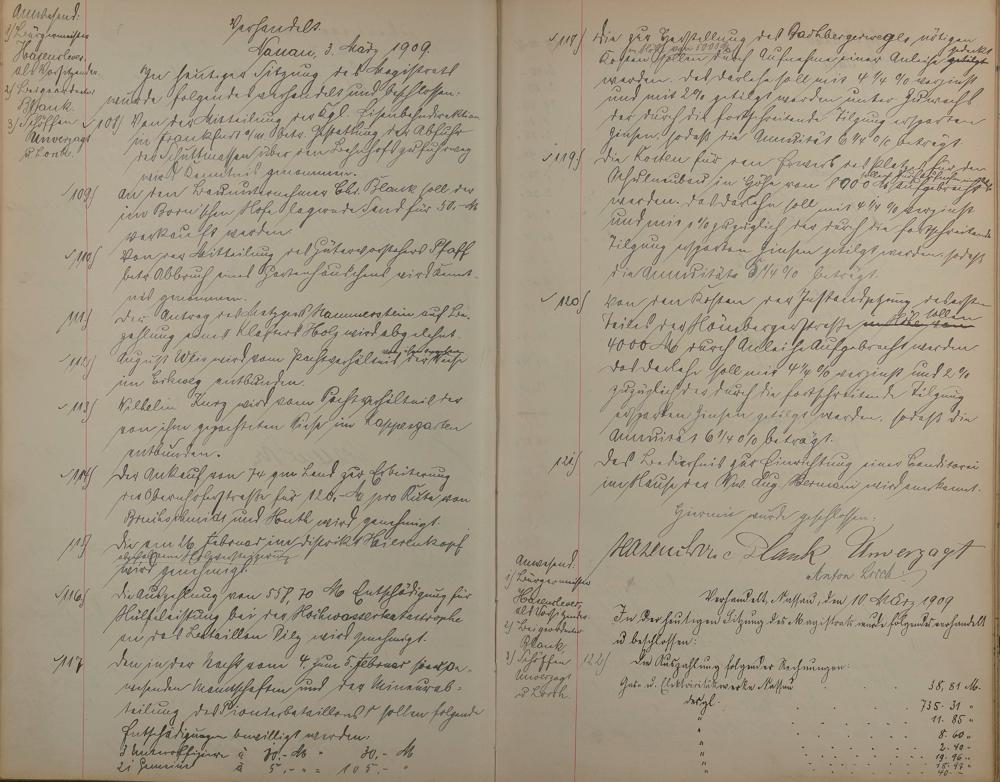 Anwesend:
1) Bürgermeister
Hasenclever,
als Vorsitzender
2) Beigeordneter
Blank.
3) Schöffen
Unverzagt
u Lorch.
Verhandelt.
Nassau, 3. März 1909.
In heutiger Sitzung des Magistrats
wurde folgendes verhandelt und beschlossen:
108) Von der Mitteilung der Kgl. Eisenbahndirektion
in Frankfurt a/M betr. Gestattung der Abfuhr
der Schuttmassen über den Bahnhof
wird Kenntnis genommen.
109) An den Bauunternehmer Chr. Blank soll der
im Born'schen Hofe lagernde Sand für 50.- M
verkauft werden.
110) Von der Mitteilung des Gütervorstehers Pfaff
betr. Abbruch eines Gartenhäuschens wird Kennt-
nis genommen.
111) Der Antrag des Metzgers Hammerstein auf Be-
zahlung eines Klafters Holz wird abgelehnt.
112) August Weis wird vom Pachtverhältnis der Wiese
im entbunden.
113) Wilhelm Kurz wird vom Pachtverhältnis der
von ihm gepachteten Wiese im
entbunden.
114) Der Ankauf von 74 qm Land zur Erbreiterung
der Obernhoferstraße für 120,- M pro Rute von
und wird genehmigt.
115) Die am 26. Februar im Distrikt Hairenkopf
abgehaltene Holzversteigerung
wird genehmigt.
116) Die Auszahlung von 558,70 M Entschädigung für
Hülfeleistung bei der Hochwasserkatastrophe
an das wird genehmigt.
117 Den in der Nacht vom 4. zum 5. Februar
Mannschaften und der Mineurab-
teilung des Pionierbataillons sollen folgende
Entschädigungen bewilligt werden:
3 Unteroffiziere à 30.- M " 30.- M
21 Gemeine à 5,- " = 105.- "
118) Die zur Herstellung des wegs nötigen
Kosten sollen durch Aufnahme einer Anleihe gedeckt
werden. Das Darlehn soll mit 4 1/4 % verzinst
und mit 2 % getilgt werden unter Zuwachs
der durch die fortschreitende Tilgung ersparten
Zinsen, sodaß die Annuität 6 1/4 % beträgt.
119) Die Kosten für den Erwerb des Platzes für den
Schulneubau in Höhe von 8000 M aufgebracht
werden. Das Darlehn soll mit 4 1/4 % verzinst
und mit 1 % zuzüglich der durch die fortschreitende
Tilgung ersparten Zinsen getilgt werden, sodaß
die Annuität 5 1/4 % beträgt.
120) Von den Kosten der Instandsetzung des ersten
Teiles der Hömbergerstraße sollen
4000 M durch Anleihe aufgebracht werden.
Das Darlehn soll mit 4 1/4 % verzinst und 2 %
zuzüglich der durch die fortschreitende Tilgung
ersparten Zinsen getilgt werden, sodaß die
Annuität 6 1/4 % beträgt.
121) Das Bedürfnis zur Einrichtung einer Conditorei
im Hause des Aug. Hermani wird anerkannt.
Hiermit wurde geschlossen.
Hasenclever Blank Unverzagt
Anton Lorch
Anwesend.
1) Bürgermeister
Hasenclever,
als Vorsitzender
2) Beigeordneter
Blank.
3) Schöffen
Unverzagt
u Lorch
Verhandelt, Nassau, den 10 März 1909
In der heutigen Sitzung des Magistrats wurde folgendes verhandelt
u beschlossen:
122) Die Auszahlung folgender Rechnungen:
Gas- u. Elektrizitätswerke Nassau 38,81 M.
desgl. 735.31 "
" 11.85 "
" 8.60 "
" 2.40 "
" 19.96 "